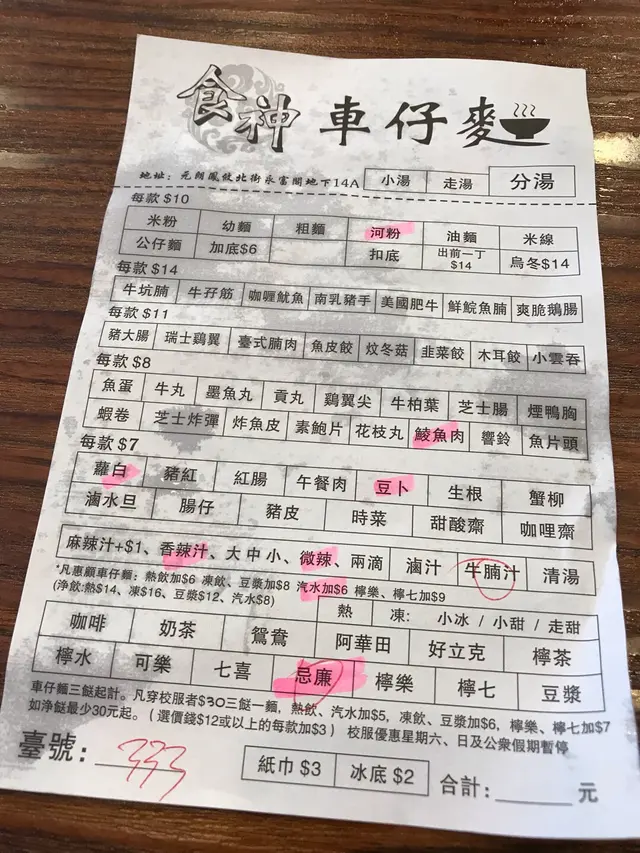 食神 車仔麵
地址：元朗鳳攸北街永富閣地下14A 小湯 走湯 分湯
每款 $10
米粉 幼麵 粗麵 河粉 油麵 米線
公仔麵 加底$6 扣底 出前一丁$14 烏冬$14
每款 $14
牛坑腩 牛孖筋 咖喱魷魚 南乳豬手 美國肥牛 鮮鯇魚腩 爽脆鵝腸
每款 $11
豬大腸 瑞士鷄翼 臺式腩肉 魚皮餃 炆冬菇 韭菜餃 木耳餃 小雲吞
每款 $8
魚蛋 牛丸 墨魚丸 貢丸 鷄翼尖 牛柏葉 芝士腸 煙鴨胸
蝦卷 芝士炸彈 炸魚皮 素鮑片 花枝丸 鯪魚肉 響鈴 魚片頭
每款 $7
蘿白 豬紅 紅腸 午餐肉 豆卜 生根 蟹柳
滷水旦 腸仔 豬皮 時菜 甜酸齋 咖哩齋
麻辣汁+$1、香辣汁、大中小、微辣、兩滴 滷汁 牛腩汁 清湯
*凡惠顧車仔麵：熱飲加$6 凍飲、豆漿加$8 汽水加$6 檸樂、檸七加$9
(净飲:熱$14、凍$16、豆漿$12、汽水$8)
熱 凍: 小冰 / 小甜 / 走甜
咖啡 奶茶 鴛鴦 阿華田 好立克 檸茶
檸水 可樂 七喜 忌廉 檸樂 檸七 豆漿
車仔麵三餸起計。凡穿校服者$30三餸一麵，熱飲、汽水加$5，凍飲、豆漿加$6，檸樂、檸七加$7
如净餸最少30元起。（選價錢$12或以上的每款加$3） 校服優惠星期六、日及公衆假期暫停
臺號：333 紙巾 $3 冰底 $2 合計：______元